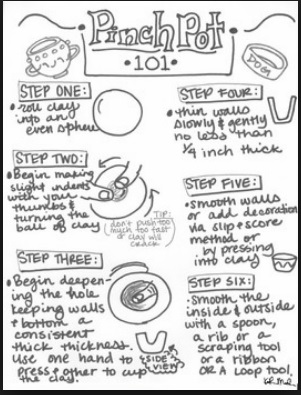 Pinch Pot
•101•
DOG
STEP ONE:
•roll clay
into an
even sphere
STEP TWO:
•Begin making
slight indents
with your
thumbs &
turning the
ball of clay
TIP:
(don't push too
much too fast
or clay will
crack)
STEP THREE:
•Begin deepen-
ing the hole
keeping walls
& bottom a
consistent
thick thickness.
Use one hand to
press & other to cup
the clay.
SIDE
VIEW
STEP FOUR:
•thin walls
slowly & gently
no less than
1/4 inch thick
STEP FIVE:
•Smooth walls
or add decoration
via slip & score
method or
by pressing
into clay
STEP SIX:
•Smooth the
inside & outside
with a spoon,
a rib or a
scraping tool
or a ribbon
OR A LOOP tool.